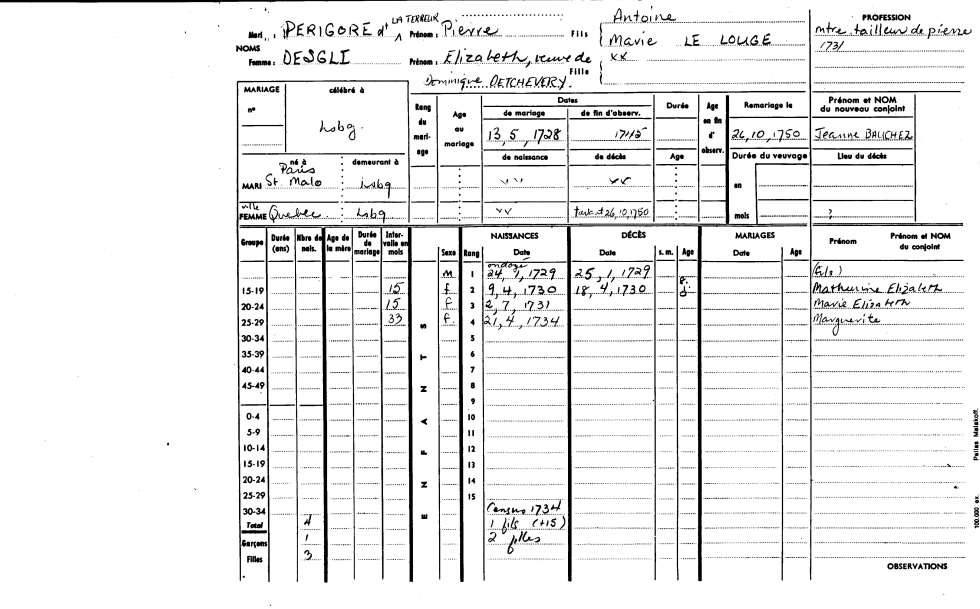 Mari : PERIGORD d' LA TERREUR Prénom : Pierre Fils Antoine
Marie LE LOUGE
PROFESSION
mtre tailleur de pierre
1731
NOMS
Femme : DESGLI Prénom : Elizabeth, veuve de Fille xx
Dominique DETCHEVERY.
MARIAGE célébré à
n°
Lsbg.
Rang du mariage
Age au mariage
Dates
de mariage de fin d'observ.
13, 5, 1728 1745
de naissance de décès
Durée
Age
Age en fin d'observ.
Remariage le
26, 10, 1750
Durée du veuvage
en
mois
Prénom et NOM du nouveau conjoint
Jeanne BAUCHEZ
Lieu du décès
?
né à demeurant à
MARI Paris
St. Malo Lsbg
ville
FEMME Quebec Lsbg
avt 26, 10, 1750
Groupe Durée (ans) Nbre de nais. Age de la mère Durée de mariage Intervalle en mois
ENFANTS
Sexe Rang NAISSANCES Date DÉCÈS Date s. m. Age MARIAGES Date Age Prénom Prénom et NOM du conjoint
ondoyé
M 1 24, 1, 1729 25, 1, 1729 (fils)
15-19 15 f 2 9, 4, 1730 18, 4, 1730 Elizabeth
20-24 15 f 3 2, 7, 1731 Marie Elizabeth
25-29 33 f. 4 21, 4, 1734 Marguerite
30-34 5
35-39 6
40-44 7
45-49 8
9
0-4 10
5-9 11
10-14 12
15-19 13
20-24 14
25-29 15
30-34 Census 1734
Total 4 1 fils (+15)
Garçons 1 2 filles
Filles 3
OBSERVATIONS
100.000 ex. Pelles Malakoff.